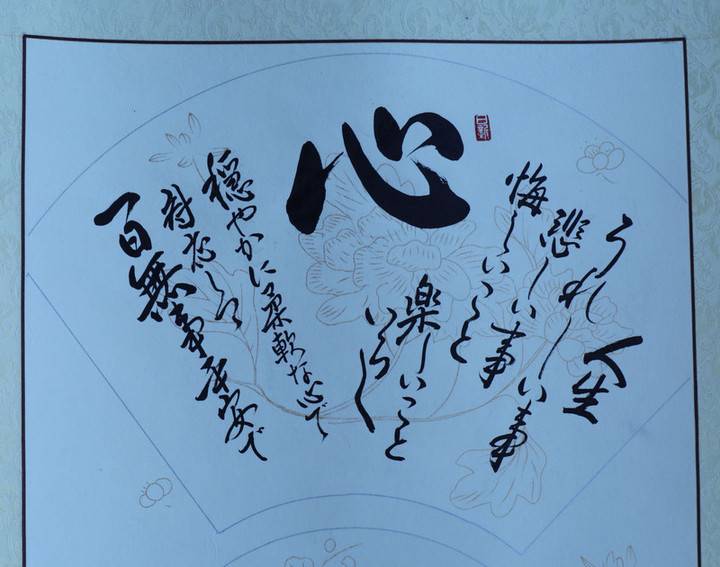 人生
うれしい事
悲しい事
悔しいこと
楽しいこと
いろ〱
心
穏やかに柔軟な心で
対応して
一日無事平安で